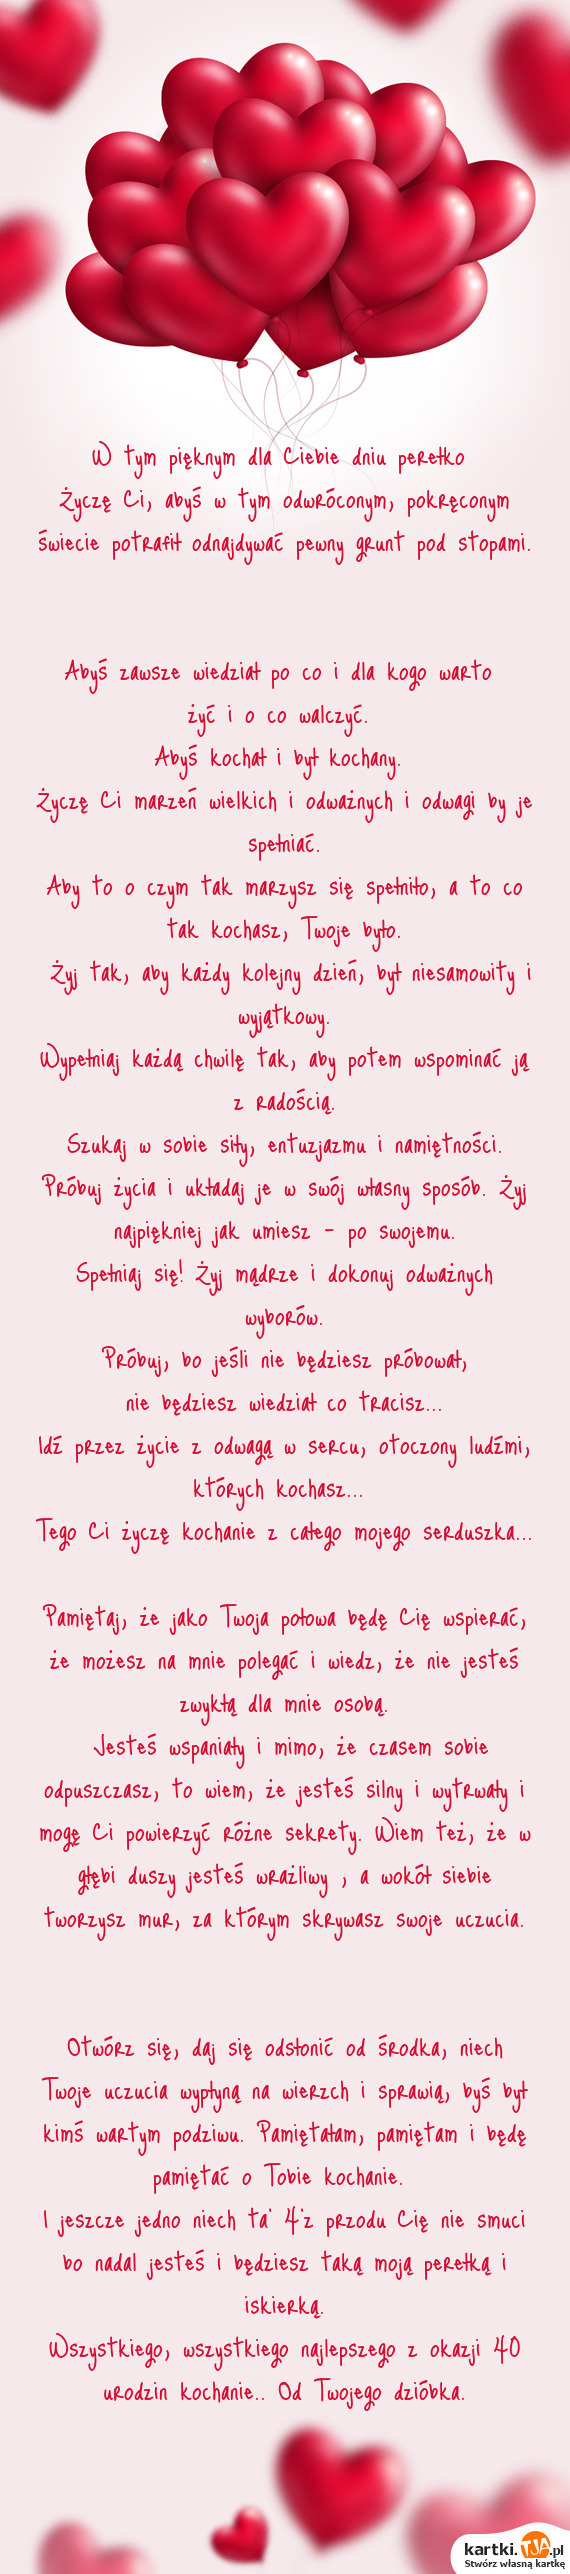 W tym pięknym dla Ciebie dniu perełko
Życzę Ci, abyś w tym odwróconym, pokręconym
świecie potrafił odnajdywać pewny grunt pod stopami.
Abyś zawsze wiedział po co i dla kogo warto
żyć i o co walczyć.
Abyś kochał i był kochany.
Życzę Ci marzeń wielkich i odważnych i odwagi by je
spełniać.
Aby to o czym tak marzysz się spełniło, a to co
tak kochasz, Twoje było.
Żyj tak, aby każdy kolejny dzień, był niesamowity i
wyjątkowy.
Wypełniaj każdą chwilę tak, aby potem wspominać ją
z radością.
Szukaj w sobie siły, entuzjazmu i namiętności.
Próbuj życia i układaj je w swój własny sposób. Żyj
najpiękniej jak umiesz - po swojemu.
Spełniaj się! Żyj mądrze i dokonuj odważnych
wyborów.
Próbuj, bo jeśli nie będziesz próbował,
nie będziesz wiedział co tracisz...
Idź przez życie z odwagą w sercu, otoczony ludźmi,
których kochasz...
Tego Ci życzę kochanie z całego mojego serduszka...
Pamiętaj, że jako Twoja połowa będę Cię wspierać,
że możesz na mnie polegać i wiedz, że nie jesteś
zwykłą dla mnie osobą.
Jesteś wspaniały i mimo, że czasem sobie
odpuszczasz, to wiem, że jesteś silny i wytrwały i
mogę Ci powierzyć różne sekrety. Wiem też, że w
głębi duszy jesteś wrażliwy , a wokół siebie
tworzysz mur, za którym skrywasz swoje uczucia.
Otwórz się, daj się odsłonić od środka, niech
Twoje uczucia wypłyną na wierzch i sprawią, byś był
kimś wartym podziwu. Pamiętałam, pamiętam i będę
pamiętać o Tobie kochanie.
I jeszcze jedno niech ta' 4'z przodu Cię nie smuci
bo nadal jesteś i będziesz taką moją perełką i
iskierką.
Wszystkiego, wszystkiego najlepszego z okazji 40
urodzin kochanie.. Od Twojego dzióbka.
kartki.TJA.pl
Stwórz własną kartkę